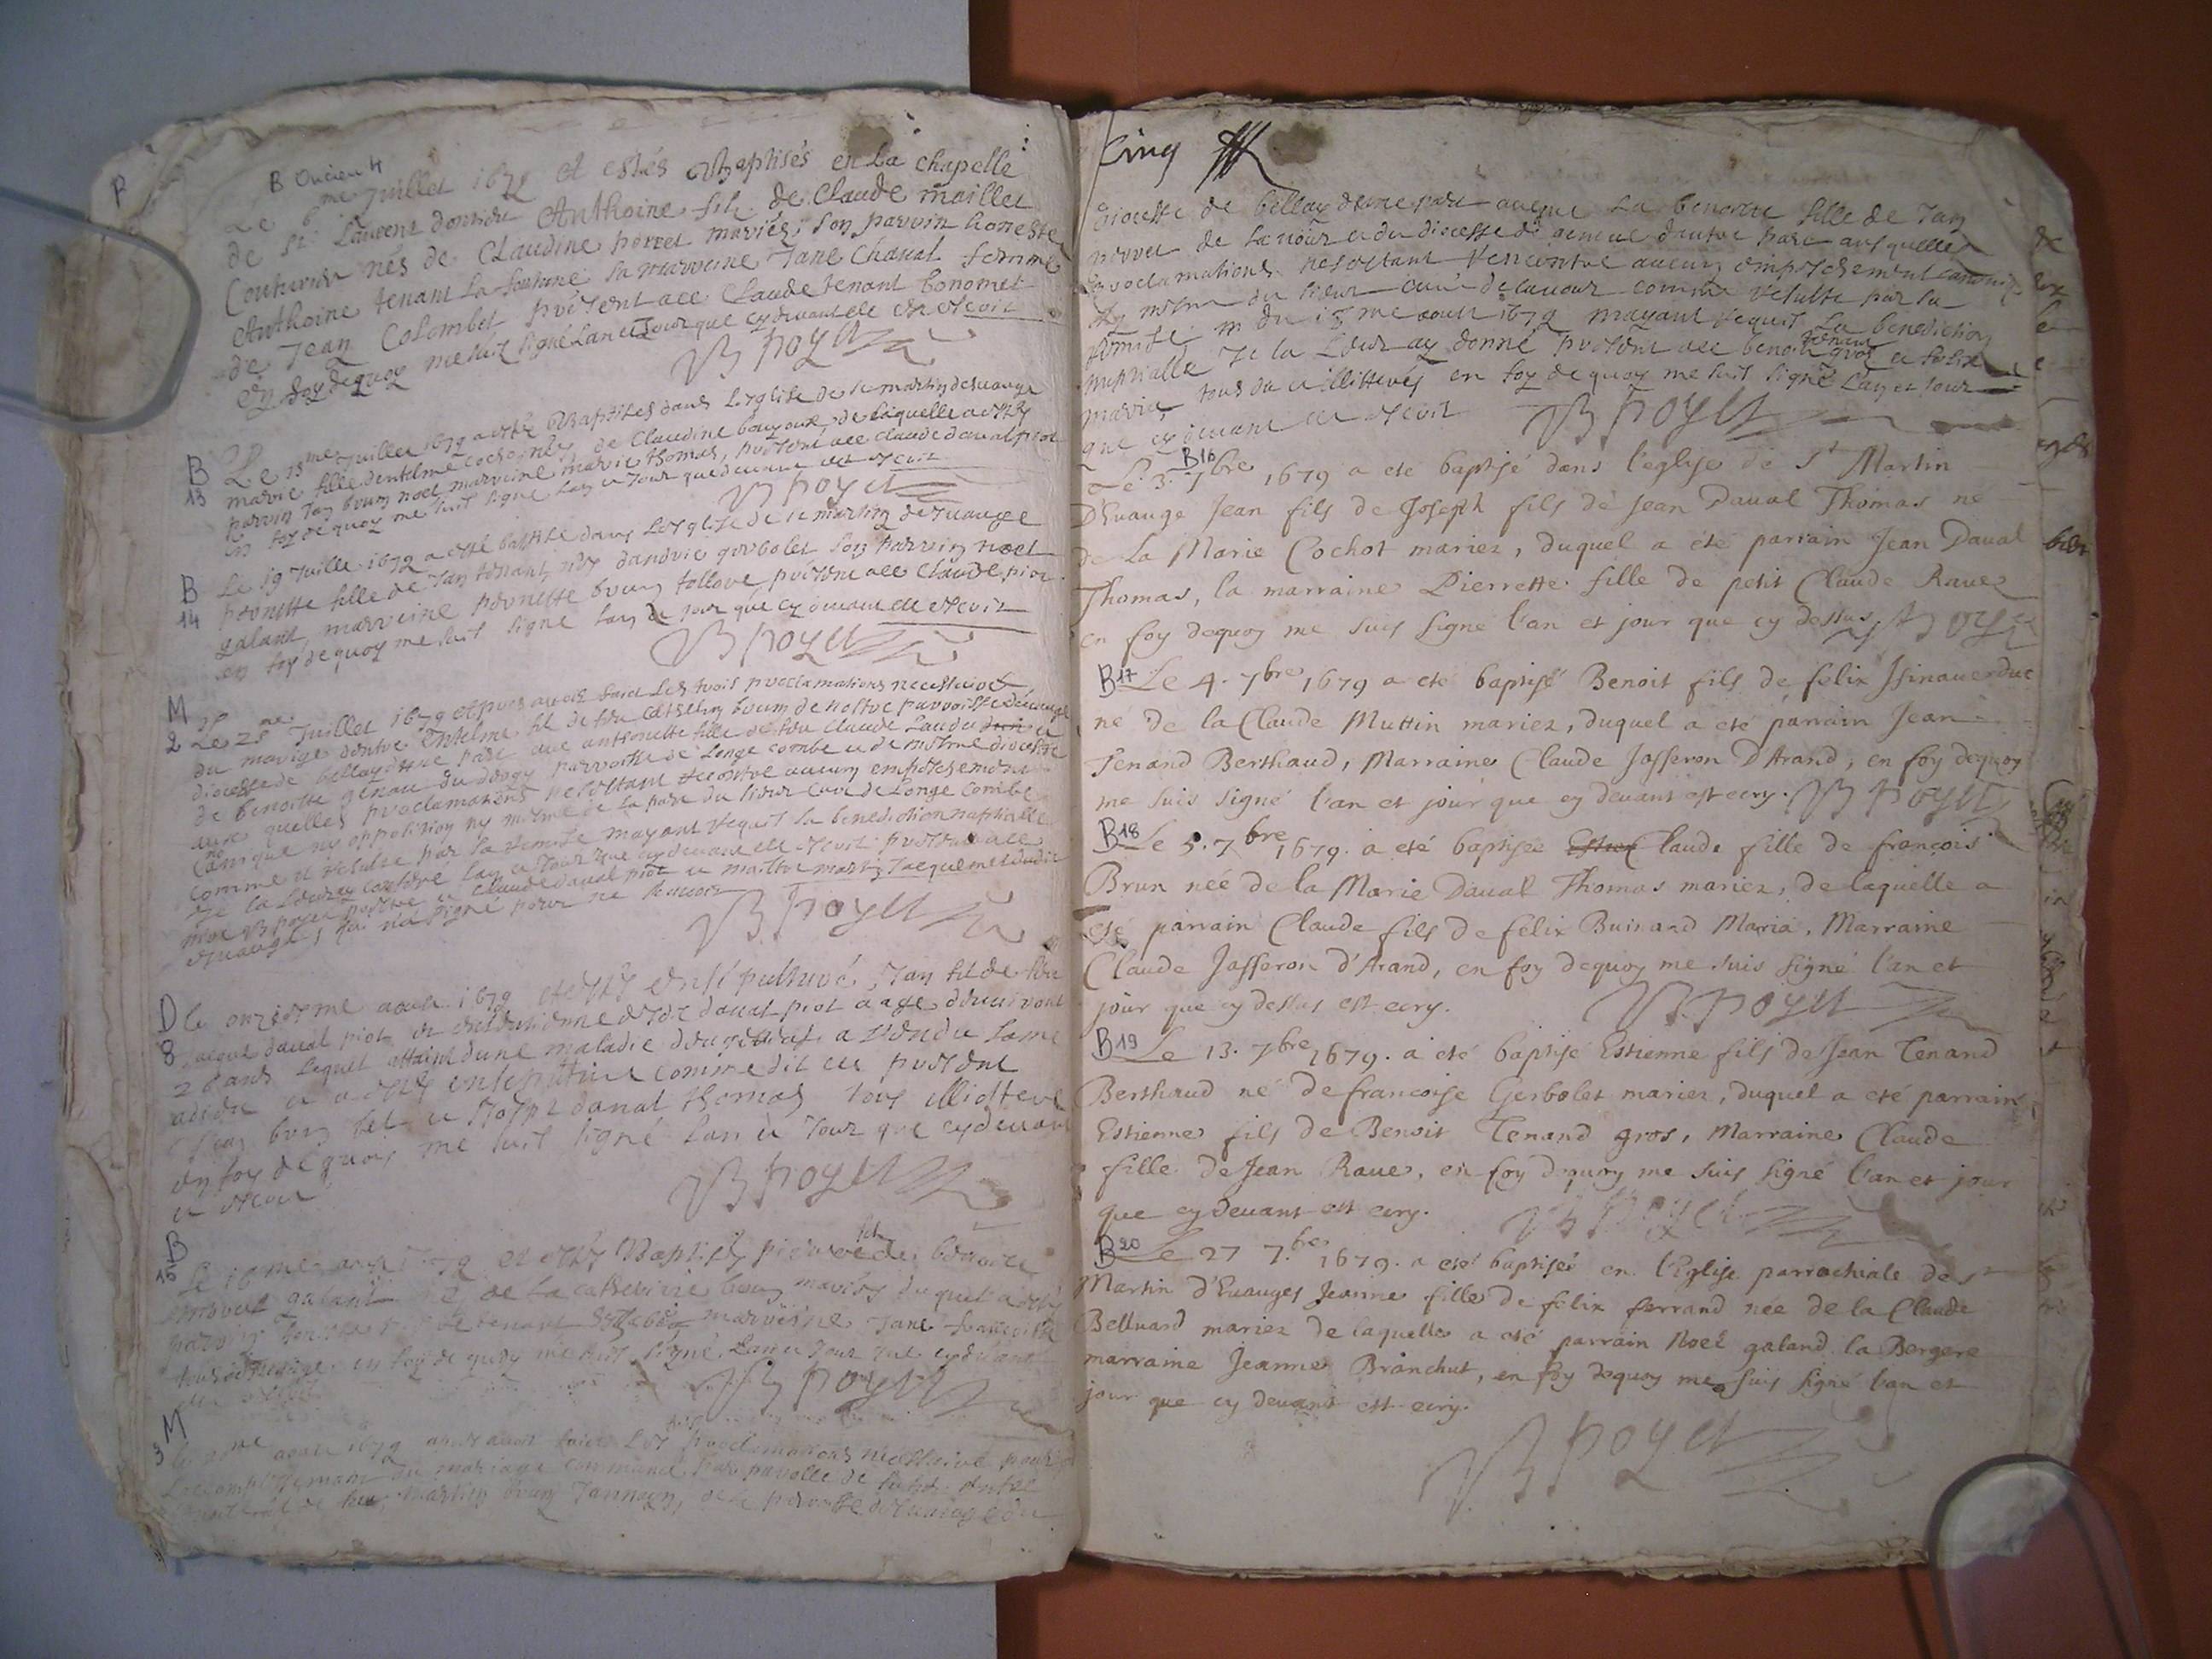 B Oncien 4
Le 6me Juillet 1679 et estés Baptisés en La chapelle
de St. Laurent Anthoine fils de Claude maillet
Couturier nés de Claudine perret mariés, son parvin honeste
Anthoine tenant La fontaine sa marveine Jane Chanal femme
de Jean Colombet, présent avec Claude tenant bonomet
En foy dequoy me suis signé Lan et Jour que cy devant est escrit
B poyet
B 13
Le 13me Juillet 1679 a esté Baptisés dans Leglise de st martin desuange
marie fille dentelme cochonet, de Claudine de Laquelle a estés
parvin Jan brun noel marveine marie thomas, présent avec claude daual piot
En foy de quoy me suis signé Lan et Jour que devant est escrit
B poyet
B 14
Le 19 Juillet 1679 a esté batisée dans Lesglise de st martin desuange
pernette fille de Jan tenant, nés dandrie gerbolet son parvin noel
galand, marveine pernette brun follove, présent avec Claude piot
en foy de quoy me suis signé Lan et jour que cy devant est escrit
B poyet
M 2
Le 25me Juillet 1679 apres avoir faict Les trois proclamations necessaires
du mariage dentre Entelme fil de feu Cathelin brun de nostre parroisse desuange
diocesse de bellay dune part avec anthonette fille de feu Claude Landu
de benoitte genau du dergy parroisse de Longe combe et de mesme diocesse
aux quelles proclamations nesestant rencontré aucun empeschement
Canonique ny opposition ny mesme de La part du sieur curé de Longe Combe
comme il resulte par sa remise mayant requit La benediction nuptialle
Je La Leur ay conferé Lan et Jour que cy devant est escrit présent avec
moy B poyet prestre et Claude daual piot et maistre martin Jacquemet dudit
esuange, qui na signé pour ne scavoir
B. Poyet
D 8
le onziesme aout 1679 et estés ensepulturé, Jan fil de feu
daual piot et destiennette daual piot aagé denviront
28 ans Lequel attaint dune maladie a rendu Lame
a dieu et a estés ensepulturé comme dit est présent
Jean brun bel et Joseph danal thomas tous illitteré
en foy de quoy me suis signé Lan et Jour que cy devant
est escrit
B poyet
B 15
Le 16me aout 1679 et estés Baptisés pierre fil de benoite
perret galand nés de La catherine brun mariés duquel a estés
parvin tenant marveine Jane francoise
en foy de quoy me suis signé Lan et Jour que cy devant
est escrit
B poyet
M 3
le me aout 1679 apres avoir faict Les proclamations necessaires pour
Lacomplissemant du mariage commancé par parolle de futur Entre
de feu Martin brun Jannon, de la parroisse desuange et du
Cinq
diocesse de bellay dune part avecque La benoite fille de Jan
pervet de La nour et du diocesse de geneue dautre part ausquelles
proclamations nesestant rencontré aucun empeschement canonique
ny mesme du sieur curé de Lanour comme resulte par sa
remise du 18me aout 1679 mayant requit La benediction
nuptialle Je La Leur ay donné présent avec benoit tenant gros et felix
maria tous illitterés en foy de quoy me suis signé Lan et Jour
que cy devant est escrit
B poyet
B16
Le 3. 7bre 1679 a eté baptisé dans l'eglise de St Martin
D'Euange Jean fils de Joseph fils de Jean Daual Thomas né
de La Marie Cochot mariez, duquel a eté parrain Jean Daual
Thomas, la marraine Pierrette fille de petit Claude Raue
en foy dequoy me suis signé l'an et jour que cy dessus, B poyet
B17
Le 4. 7bre 1679 a eté baptisé Benoit fils de felix Jsinauerduc
né de la Claude Muttin mariez, duquel a eté parrain Jean
Tenand Berthaud, Marraine Claude Jasseron D'Arand, en foy dequoy
me suis signé l'an et jour que cy devant est ecry. B poyet
B18
Le 5. 7bre 1679. a eté baptisée Claude fille de françois
Brun née de la Marie Daual Thomas mariez, de laquelle a
eté parrain Claude fils de felix Buisand Maria, Marraine
Claude Jasseron d'Arand, en foy dequoy me suis signé l'an et
jour que cy dessus est ecry. B. poyet
B19
Le 13. 7bre 1679. a eté baptisé Estienne fils de Jean Tenand
Berthaud né de francoise Gerbolet mariez, duquel a eté parrain
Estienne fils de Benoit Tenand gros, Marraine Claude
fille de Jean Raue, en foy dequoy me suis signé l'an et jour
que cy devant est ecry. B poyet
B20
Le 27 7.bre 1679. a eté baptisée en l'Eglise parrochiale de St
Martin d'Euanges Jeanne fille de felix ferrand née de la Claude
Belluard mariez de laquelle a eté parrain Noel galand la Bergere
marraine Jeanne Branchut, en foy dequoy me suis signé l'an et
jour que cy devant est ecry.
B poyet